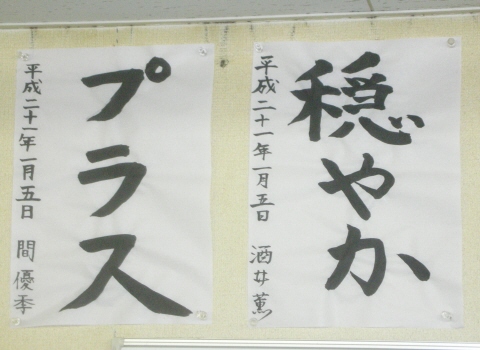 穏やか
平成二十一年一月五日 酒井薫
プラス
平成二十一年一月五日 間優季